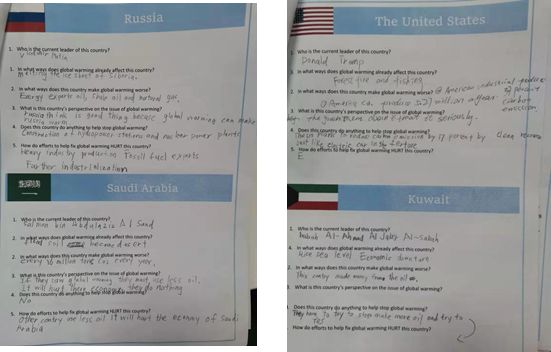 Russia
1. Who is the current leader of this country?
Vladimir Putin
1. In what ways does global warming already affect this country?
Melting the ice sheet of Siberia.
2. In what ways does this country make global warming worse?
Energy exports oil, shale oil and natural gas.
3. What is this country's perspective on the issue of global warming?
Russia think is good thing because global warming can make
russia warm.
4. Does this country do anything to help stop global warming?
Construction of hydropower stations and nuclear power plants
5. How do efforts to help fix global warming HURT this country?
Heavy industry production Fossil fuel exports
Further industrialization
Saudi Arabia
1. Who is the current leader of this country?
Salman bin Abdulaziz Al Saud
2. In what ways does global warming already affect this country?
soil become desert
2. In what ways does this country make global warming worse?
every million tons Co2 every year
3. What is this country's perspective on the issue of global warming?
If they care global warming they must use less oil.
It will hurt there economy they do nothing
4. Does this country do anything to help stop global warming?
No
5. How do efforts to help fix global warming HURT this country?
Other contry use less oil It will hurt the ecenomy of Saudi
Arabia
The United States
1. Who is the current leader of this country?
Donald Trump
3. In what ways does global warming already affect this country?
Forest fire and fishing
2. In what ways does this country make global warming worse?
American industrial produce
percent
America Co2 produce million
carbon
emission
3. What is this country's perspective on the issue of global warming?
the government doesn't treat it seriously.
4. Does this country do anything to help stop global warming?
plans to reduce carbon emission by 17 percent by clean
just like electric car in the
5. How do efforts to help fix global warming HURT this country?
E
Kuwait
1. Who is the current leader of this country?
Al-Ahmad Al Jaber Al-Sabah
4. In what ways does global warming already affect this country?
Rise sea level Economic
2. In what ways does this country make global warming worse?
This contry make money from the oil
3. What is this country's perspective on the issue of global warming?
Does this country do anything to help stop global warming?
They to try to stop make more oil and try to
How do efforts to help fix global warming HURT this country?